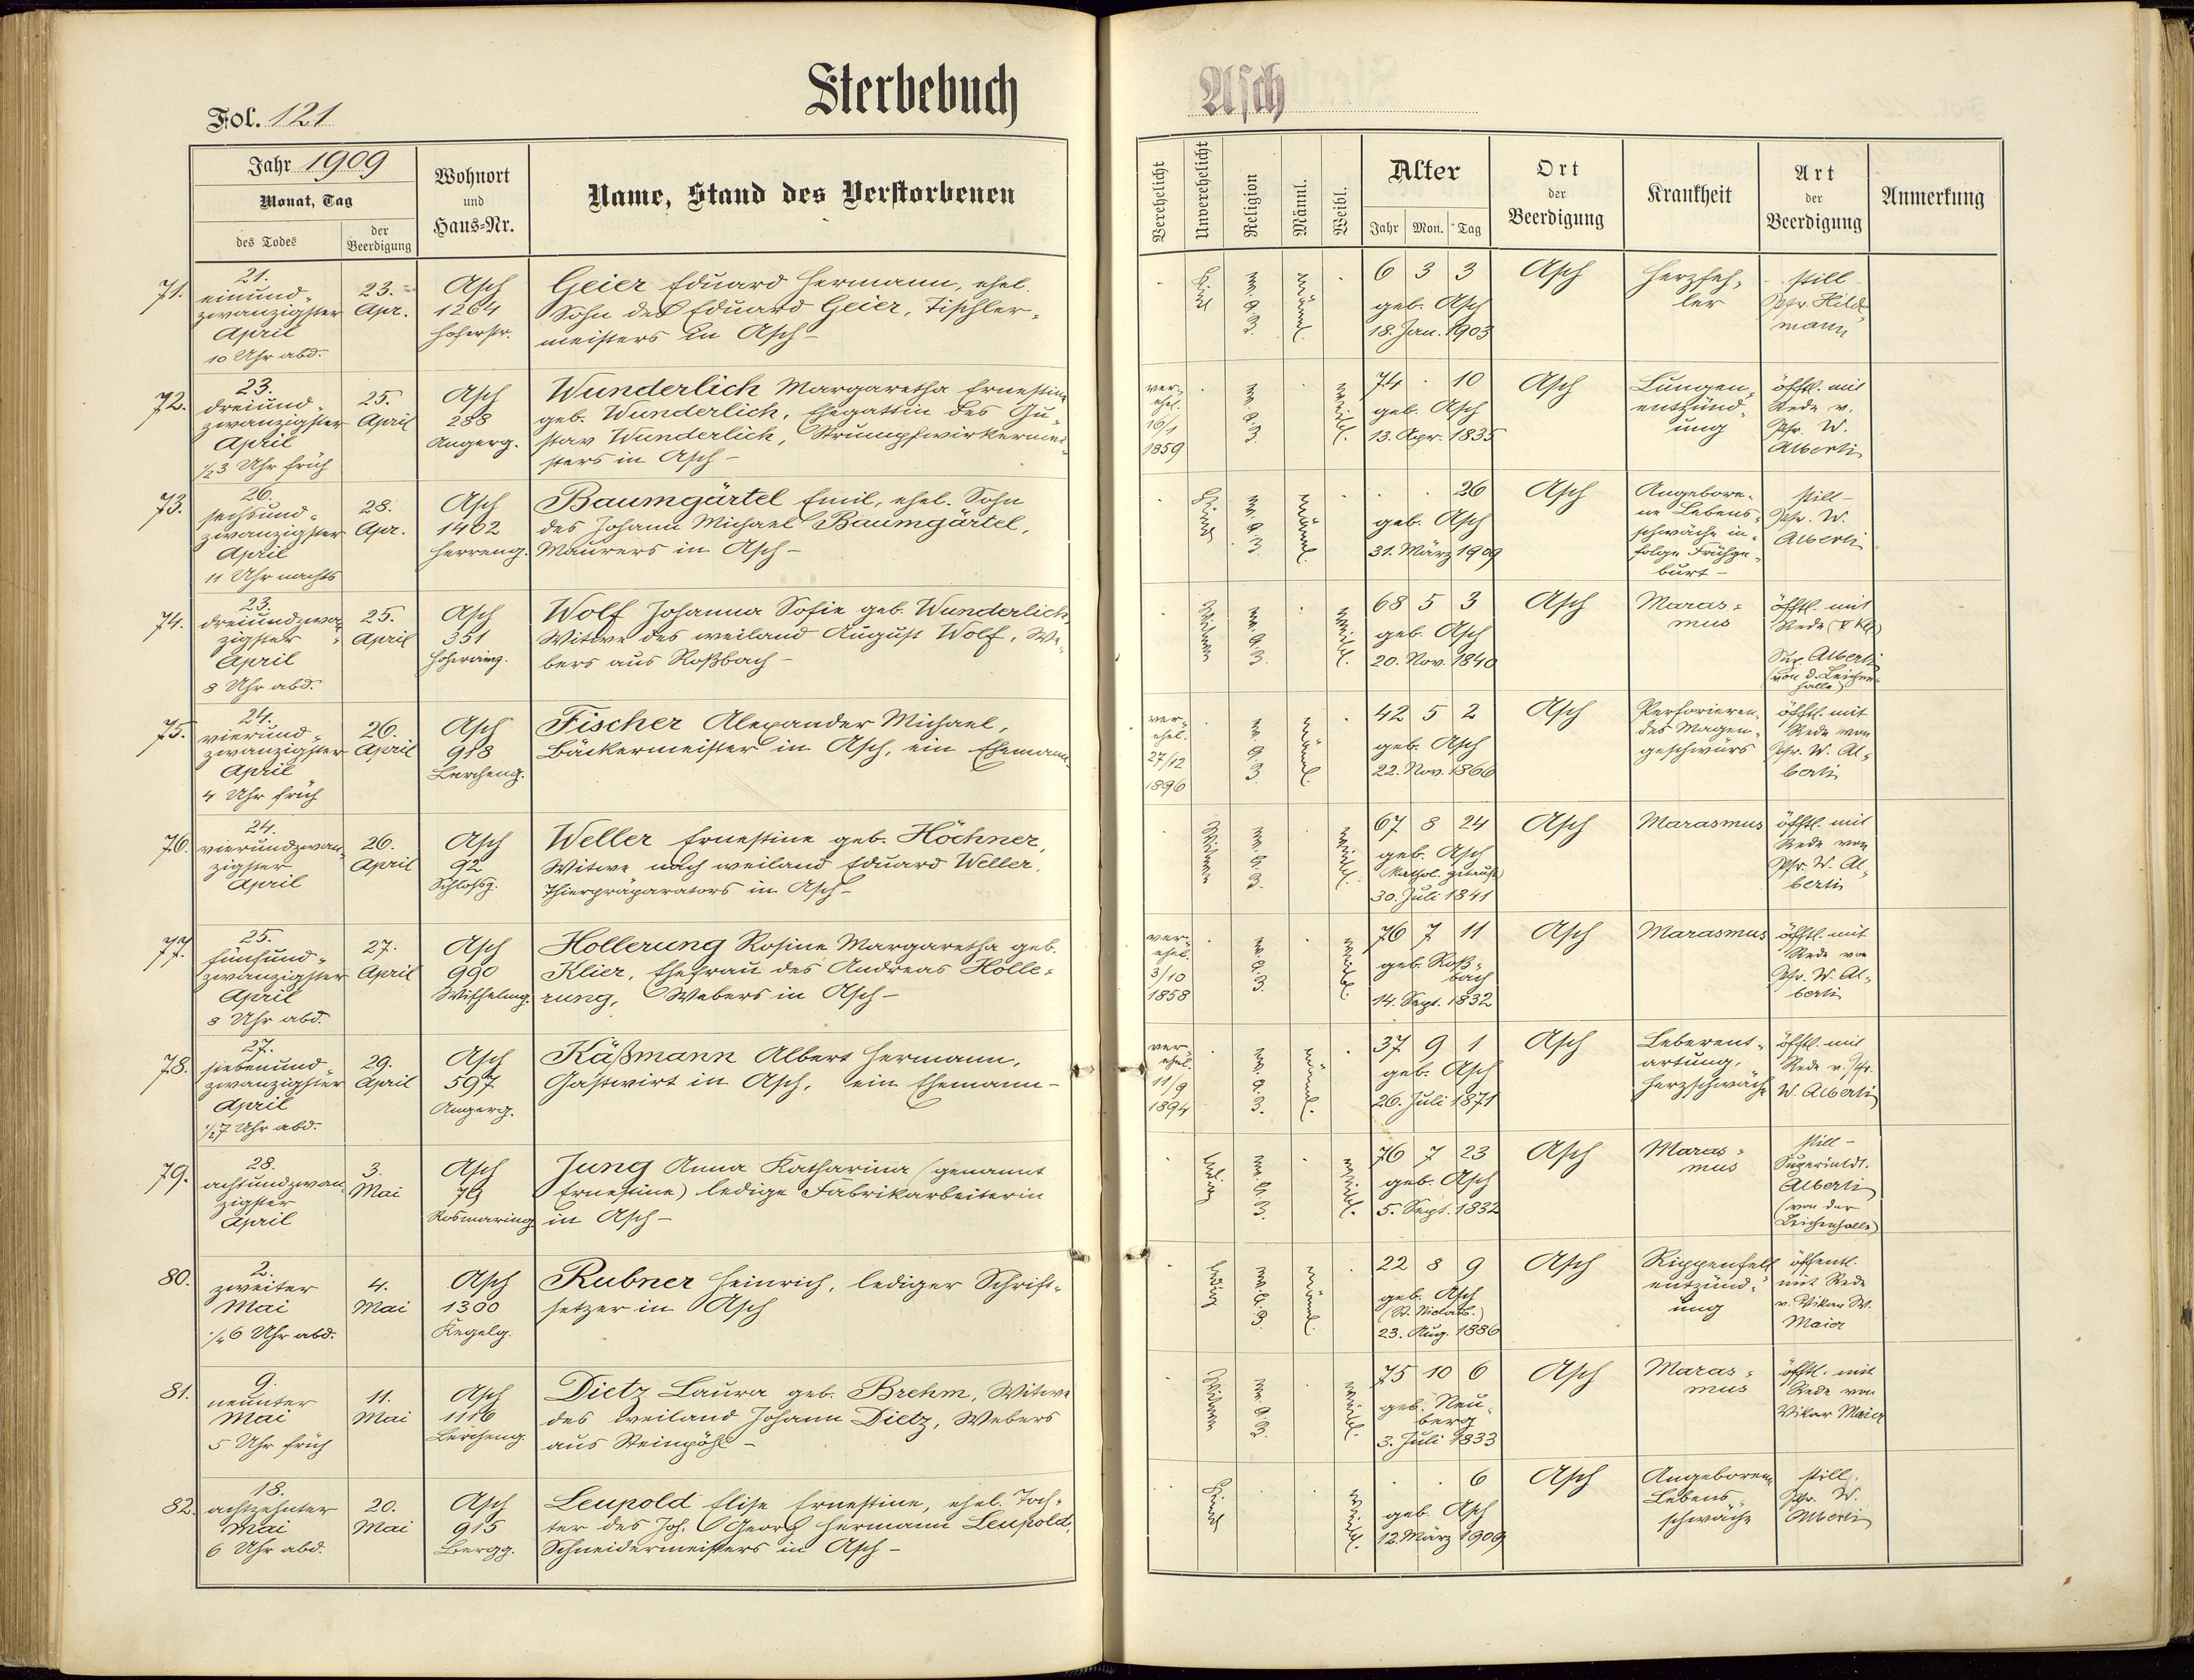 Sterbebuch
Asch
Fol. 121
Jahr 1909
Monat, Tag
des Todes
der Beerdigung
Wohnort und Haus-Nr.
Name, Stand des Verstorbenen
Verehelicht
Unverehelicht
Religion
Männl.
Weibl.
Alter
Jahr Mon. Tag
Ort der Beerdigung
Krankheit
Art der Beerdigung
Anmerkung
71.
21.
einund-
zwanzigster
April
10 Uhr abd.
23.
Apr.
Asch
1264
Hoferstr.
Geier Eduard Hermann, ehel.
Sohn des Eduard Geier, Tischler-
meisters in Asch –
Kind
männl.
6 3 3
geb. Asch
18. Jan. 1903
Asch
Herzfeh-
ler
still
Pfr. Hild-
mann
72.
23.
dreiund-
zwanzigster
April
½3 Uhr früh
25.
April
Asch
288
Angerg.
Wunderlich Margaretha Ernestine
geb. Wunderlich, Ehegattin des Gu-
stav Wunderlich, Strumpfwirkermei-
sters in Asch –
ver-
ehel.
16/1
1859
weibl.
74 . 10
geb. Asch
13. Apr. 1835
Asch
Lungen-
entzünd-
ung
öfftl. mit
Rede v.
Pfr. W.
Alberti
73.
26.
sechsund-
zwanzigster
April
11 Uhr nachts
28.
Apr.
Asch
1402
Herreng.
Baumgärtel Emil, ehel. Sohn
des Johann Michael Baumgärtel,
Maurers in Asch –
Kind
männl.
. . 26
geb. Asch
31. März 1909
Asch
Angebore-
ne Lebens-
schwäche in-
folge Frühge-
burt –
still –
Pfr. W.
Alberti
74.
23.
dreiundzwan-
zigster
April
8 Uhr abd.
25.
April
Asch
351
Wolf Johanna Sofie geb. Wunderlich,
Witwe des weiland August Wolf, We-
bers aus Roßbach –
Witwe
weibl.
68 5 3
geb. Asch
20. Nov. 1840
Asch
Maras-
mus
öfftl. mit
Rede
Sup. Alberti
(von d. Leichen-
halle)
75.
24.
vierund-
zwanzigster
April
4 Uhr früh
26.
April
Asch
918
Lercheng.
Fischer Alexander Michael,
Bäckermeister in Asch, ein Ehemann
ver-
ehel.
27/12
1896
männl.
42 5 2
geb. Asch
22. Nov. 1866
Asch
Perforieren-
des Magen-
geschwürs
öfftl. mit
Rede von
Pfr. W. Al-
berti
76.
24.
vierundzwan-
zigster
April
26.
April
Asch
92
Schlossg.
Weller Ernestine geb. Höchner,
Witwe nach weiland Eduard Weller,
Thierpräparators in Asch –
Witwe
weibl.
67 8 24
geb. Asch
(kathol. getauft)
30. Juli 1841
Asch
Marasmus
öfftl. mit
Rede von
Pfr. W. Al-
berti
77.
25.
fünfund-
zwanzigster
April
8 Uhr abd.
27.
April
Asch
990
Hollerung Rosine Margaretha geb.
Klier, Ehefrau des Andreas Holle-
rung, Webers in Asch –
ver-
ehel.
3/10
1858
weibl.
76 7 11
geb. Roß-
bach
14. Sept. 1832
Asch
Marasmus
öfftl. mit
Rede von
Pfr. W. Al-
berti
78.
27.
siebenund-
zwanzigster
April
½7 Uhr abd.
29.
April
Asch
597
Angerg.
Käßmann Albert Hermann,
Gastwirt in Asch, ein Ehemann –
ver-
ehel.
11/9
1894
männl.
37 9 1
geb. Asch
26. Juli 1871
Asch
Leberent-
artung,
Herzschwäche
öfftl. mit
Rede v. Pfr.
W. Alberti
79.
28.
achtundzwan-
zigster
April
3.
Mai
Asch
79
Rosmaring.
Jung Anna Katharina (genannt
Ernestine) ledige Fabrikarbeiterin
in Asch –
ledig
weibl.
76 7 23
geb. Asch
5. Sept. 1832
Asch
Maras-
mus
still –
Superintdt.
Alberti
(von der
Leichenhalle)
80.
2.
zweiter
Mai
¼6 Uhr abd.
4.
Mai
Asch
1300
Kegelg.
Rubner Heinrich, lediger Schrift-
setzer in Asch
ledig
männl.
22 8 9
geb. Asch
(St. Niclasb.)
23. Aug. 1886
Asch
Rippenfell
entzünd-
ung
öffentl.
mit Rede
v. Vikar W.
Maier
81.
9.
neunter
Mai
5 Uhr früh
11.
Mai
Asch
1116
Lercheng.
Dietz Laura geb. Brehm, Witwe
des weiland Johann Dietz, Webers
aus Steinpöhl –
Witwe
weibl.
75 10 6
geb. Neu-
berg
3. Juli 1833
Asch
Maras-
mus
öfftl. mit
Rede von
Vikar Maier
82.
18.
achtzehnter
Mai
6 Uhr abd.
20.
Mai
Asch
915
Bergg.
Leupold Elise Ernestine, ehel. Toch-
ter des Joh. Georg Hermann Leupold,
Schneidermeisters in Asch –
Kind
weibl.
. . 6
geb. Asch
12. März 1909
Asch
Angeborene
Lebens-
schwäche
still.
Pfr. W.
Alberti